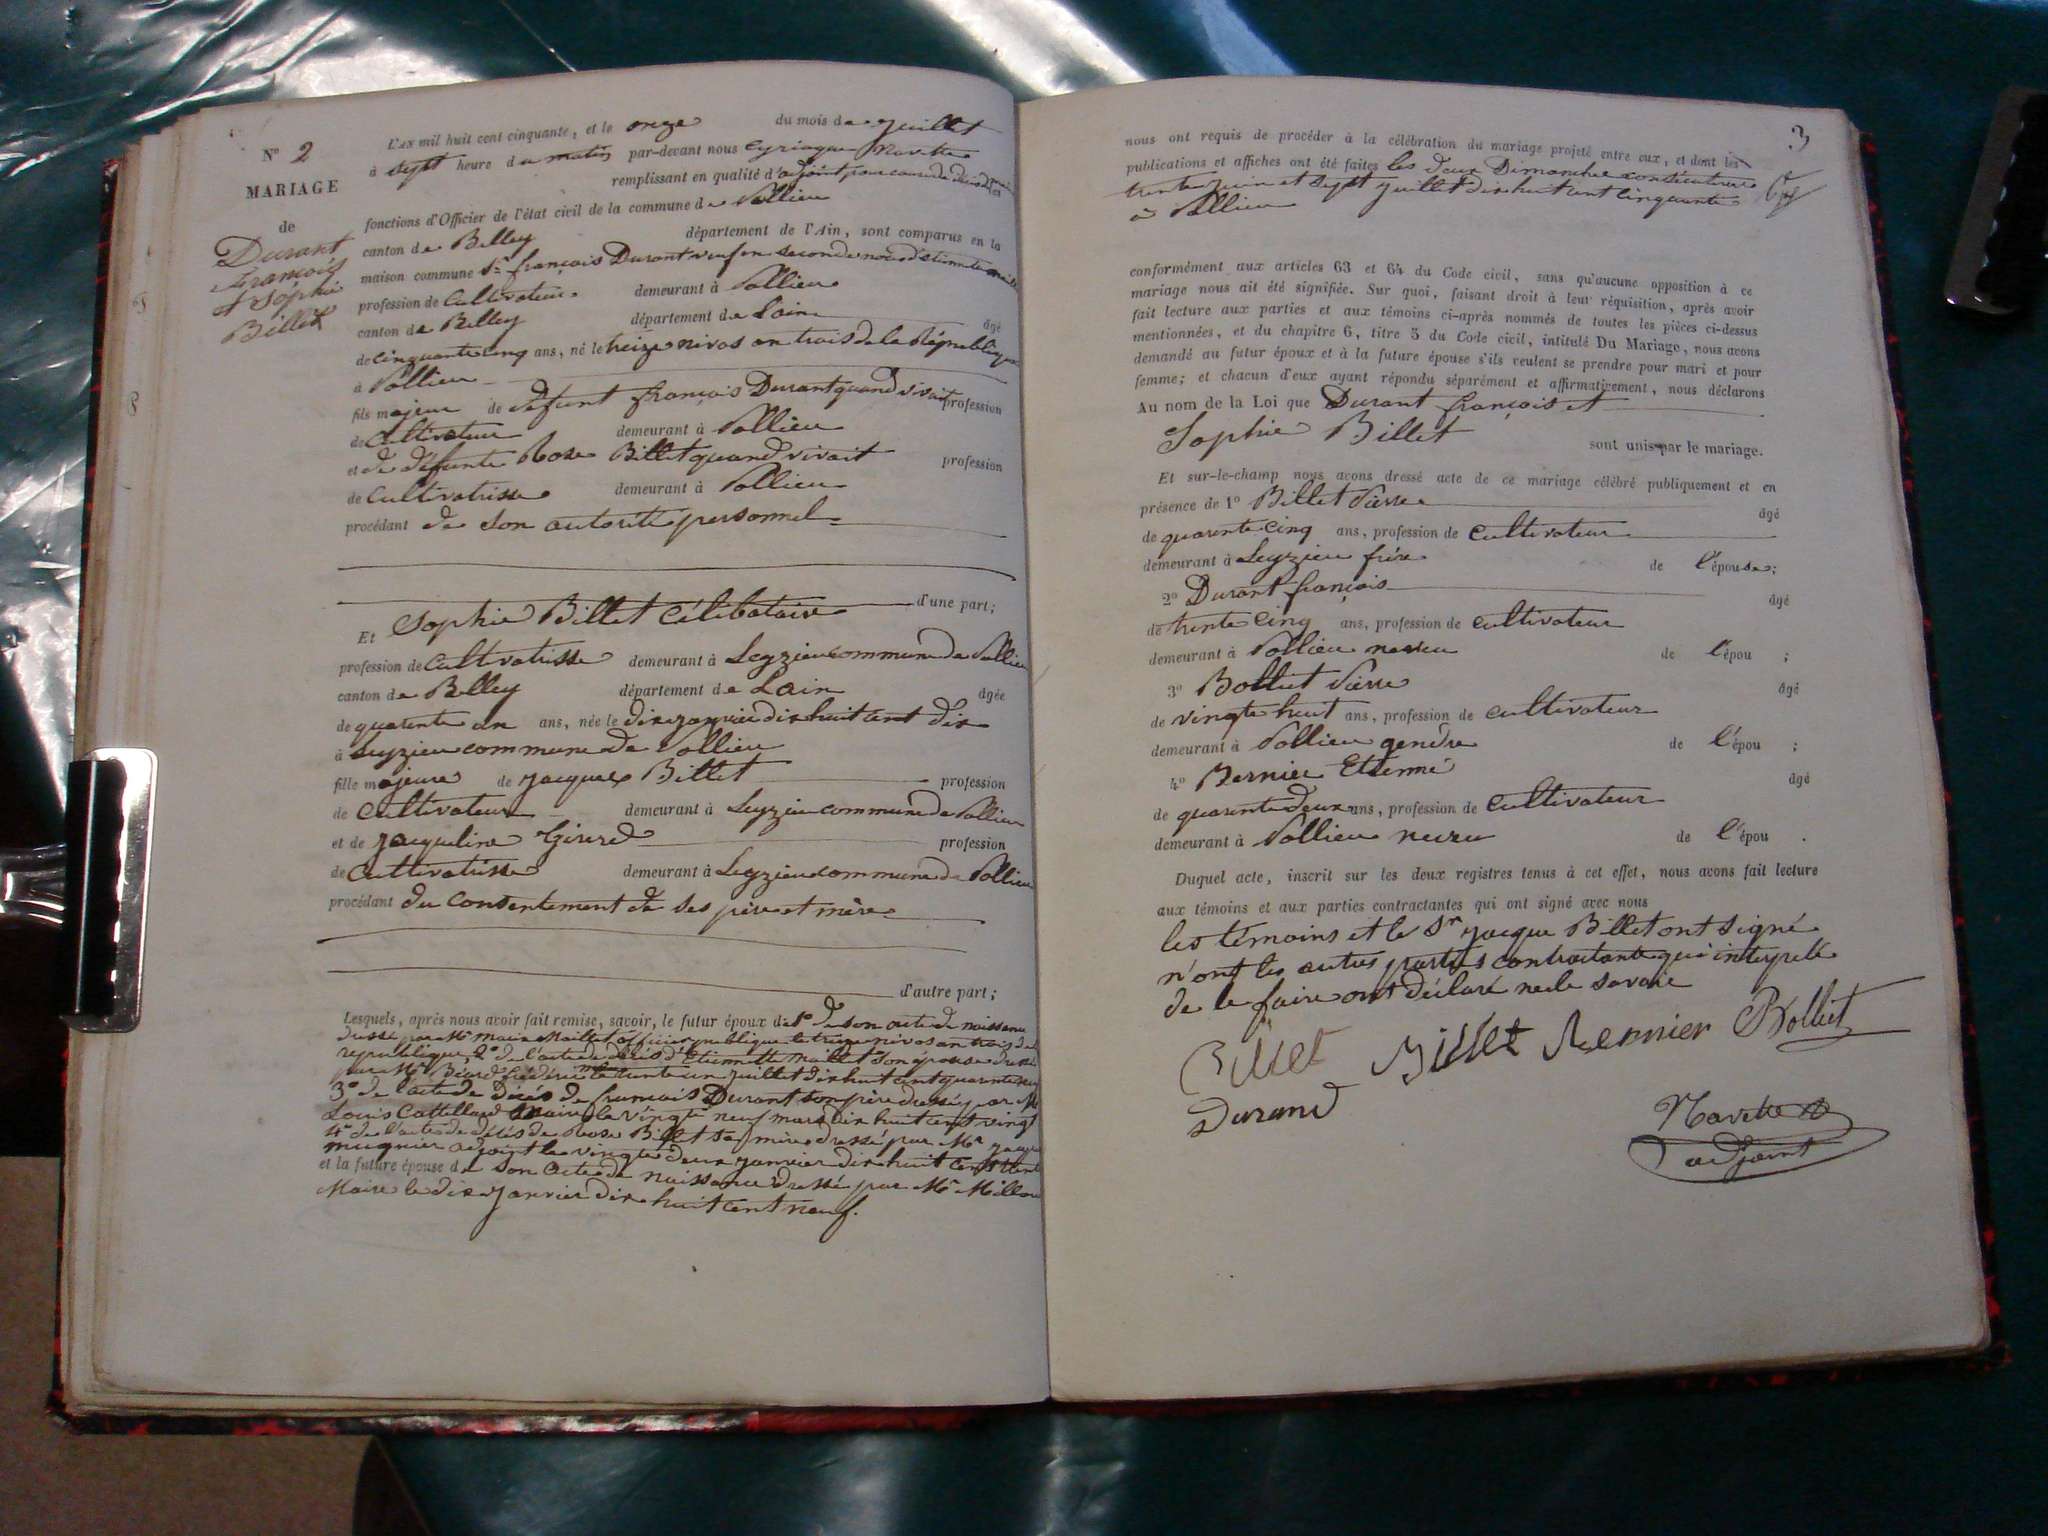 N° 2
MARIAGE
de
Durant
François
et Sophie
Billet
L'AN mil huit cent cinquante, et le onze du mois de juillet
à sept heure du matin par-devant nous Cyriaque Navette
remplissant en qualité d'adjoint pour cause de les
fonctions d'Officier de l'état civil de la commune de Pollieu
canton de Belley département de l'Ain, sont comparus en la
maison commune Sr François Durant veuf en seconde noce d'Etiennette Maillet
profession de Cultivateur demeurant à Pollieu
canton de Belley département de Lain âgé
de cinquante cinq ans, né le treize nivos an trois de la République
à Pollieu
fils majeur de défunt françois Durant quand vivait profession
de Cultivateur demeurant à Pollieu
et de défunte Rose Billet quand vivait profession
de Cultivatrisse demeurant à Pollieu
procédant de son autorité personnel
d'une part;
Et Sophie Billet Célibataire
profession de Cultivatrisse demeurant à Leyzieu commune de Pollieu
canton de Belley département de Lain âgée
de quarente an ans, née le dix janvier dix huit cent dix
à Leyzieu commune de Pollieu
fille majeure de jacques Billet profession
de Cultivateur demeurant à Leyzieu commune de Pollieu
et de jacqueline Girerd profession
de Cultivatrisse demeurant à Leyzieu commune de Pollieu
procédant du Consentement de ses père et mère
d'autre part;
Lesquels, après nous avoir fait remise, savoir, le futur époux de 1° de son acte de naissance
dressé par Mr Maillet officier publique le treize nivos an trois de la
republique 2° de l'acte de décés d'Etiennette Maillet son épouse dressé
par Mr Béard frédéric le trente un juillet dix huit cent quarente
3° de l'acte de Décés de francois Durant son père dressé par Mr
Louis Cattelland Maire le vingte neuf mars dix huit cent vingt
4° de l'acte de décés de Rose Billet sa mère dressé par Mr jacque
mugnier adjoint le vingte deux janvier dix huit cent trente
et la future épouse de son acte de naissance dressé par Mr Millou
Maire le dix janvier dix huit cent neuf.
3
nous ont requis de procéder à la célébration du mariage projeté entre eux, et dont les
publications et affiches ont été faites les deux Dimanche consécutive
trente juin et sept juillet dix huit cent cinquante
à Pollieu
conformément aux articles 63 et 64 du Code civil, sans qu'aucune opposition à ce
mariage nous ait été signifiée. Sur quoi, faisant droit à leur réquisition, après avoir
fait lecture aux parties et aux témoins ci-après nommés de toutes les pièces ci-dessus
mentionnées, et du chapitre 6, titre 5 du Code civil, intitulé Du Mariage, nous avons
demandé au futur époux et à la future épouse s'ils veulent se prendre pour mari et pour
femme; et chacun d'eux ayant répondu séparément et affirmativement, nous déclarons
Au nom de la Loi que Durant françois et
Sophie Billet sont unis par le mariage.
Et sur-le-champ nous avons dressé acte de ce mariage célébré publiquement et en
présence de 1° Billet Pierre âgé
de quarente cinq ans, profession de Cultivateur
demeurant à Leyzieu frère de l'épouse;
2° Durant françois âgé
de trente cinq ans, profession de cultivateur
demeurant à Pollieu neveu de l'épou ;
3° Bolliet Pierre âgé
de vingte huit ans, profession de cultivateur
demeurant à Pollieu gendre de l'épou ;
4° Bernier Etienné âgé
de quarente deux ans, profession de Cultivateur
demeurant à Pollieu neveu de l'épou .
Duquel acte, inscrit sur les deux registres tenus à cet effet, nous avons fait lecture
aux témoins et aux parties contractantes qui ont signé avec nous
les témoins et le Sr jacque Billet ont signé
n'ont les autres parties contractante qui interpellé
de le faire ont déclaré ne le savoir
Billet Billet Bernier Bolliet
Durand
Navette
adjoint